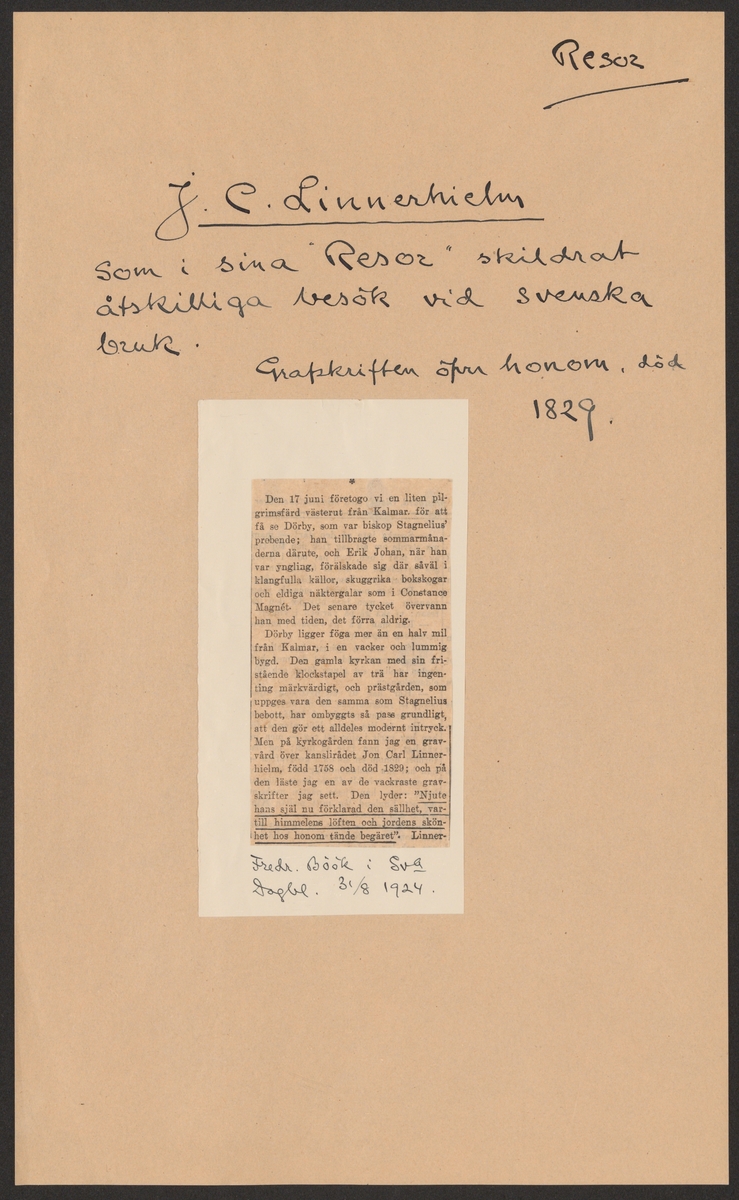 Resor
J. C. Linnerhielm
som i sina "Resor" skildrat
åtskilliga besök vid svenska
bruk.
Grafskriften öfver honom, död
1829.
*
Den 17 juni företogo vi en liten pil-
grimsfärd västerut från Kalmar. för att
få se Dörby, som var biskop Stagnelius'
probende; han tillbragte sommarmåna-
derna därute, och Erik Johan, när han
var yngling, förälskade sig där såväl i
klangfulla källor, skuggrika bokskogar
och eldiga näktergalar som i Constance
Magnét. Det senare tycket övervann
han med tiden, det förra aldrig.
Dörby ligger föga mer än en halv mil
från Kalmar, i en vacker och lummig
bygd. Den gamla kyrkan med sin fri-
stående klockstapel av trä har ingen-
ting märkvärdigt, och prästgården, som
uppges vara den samma som Stagnelius
bebott, har ombyggts så pass grundligt,
att den gör ett alldeles modernt intryck.
Men på kyrkogården fann jag en grav-
vård över kanslirådet Jon Carl Linner-
hielm, född 1758 och död 1829; och på
den läste jag en av de vackraste grav-
skrifter jag sett. Den lyder: "Njute
hans själ nu förklarad den sällhet, var-
till himmelens löften och jordens skön-
het hos honom tände begäret". Linner-
Fredr. Böök i Sva
Dagbl. 31/8 1924.